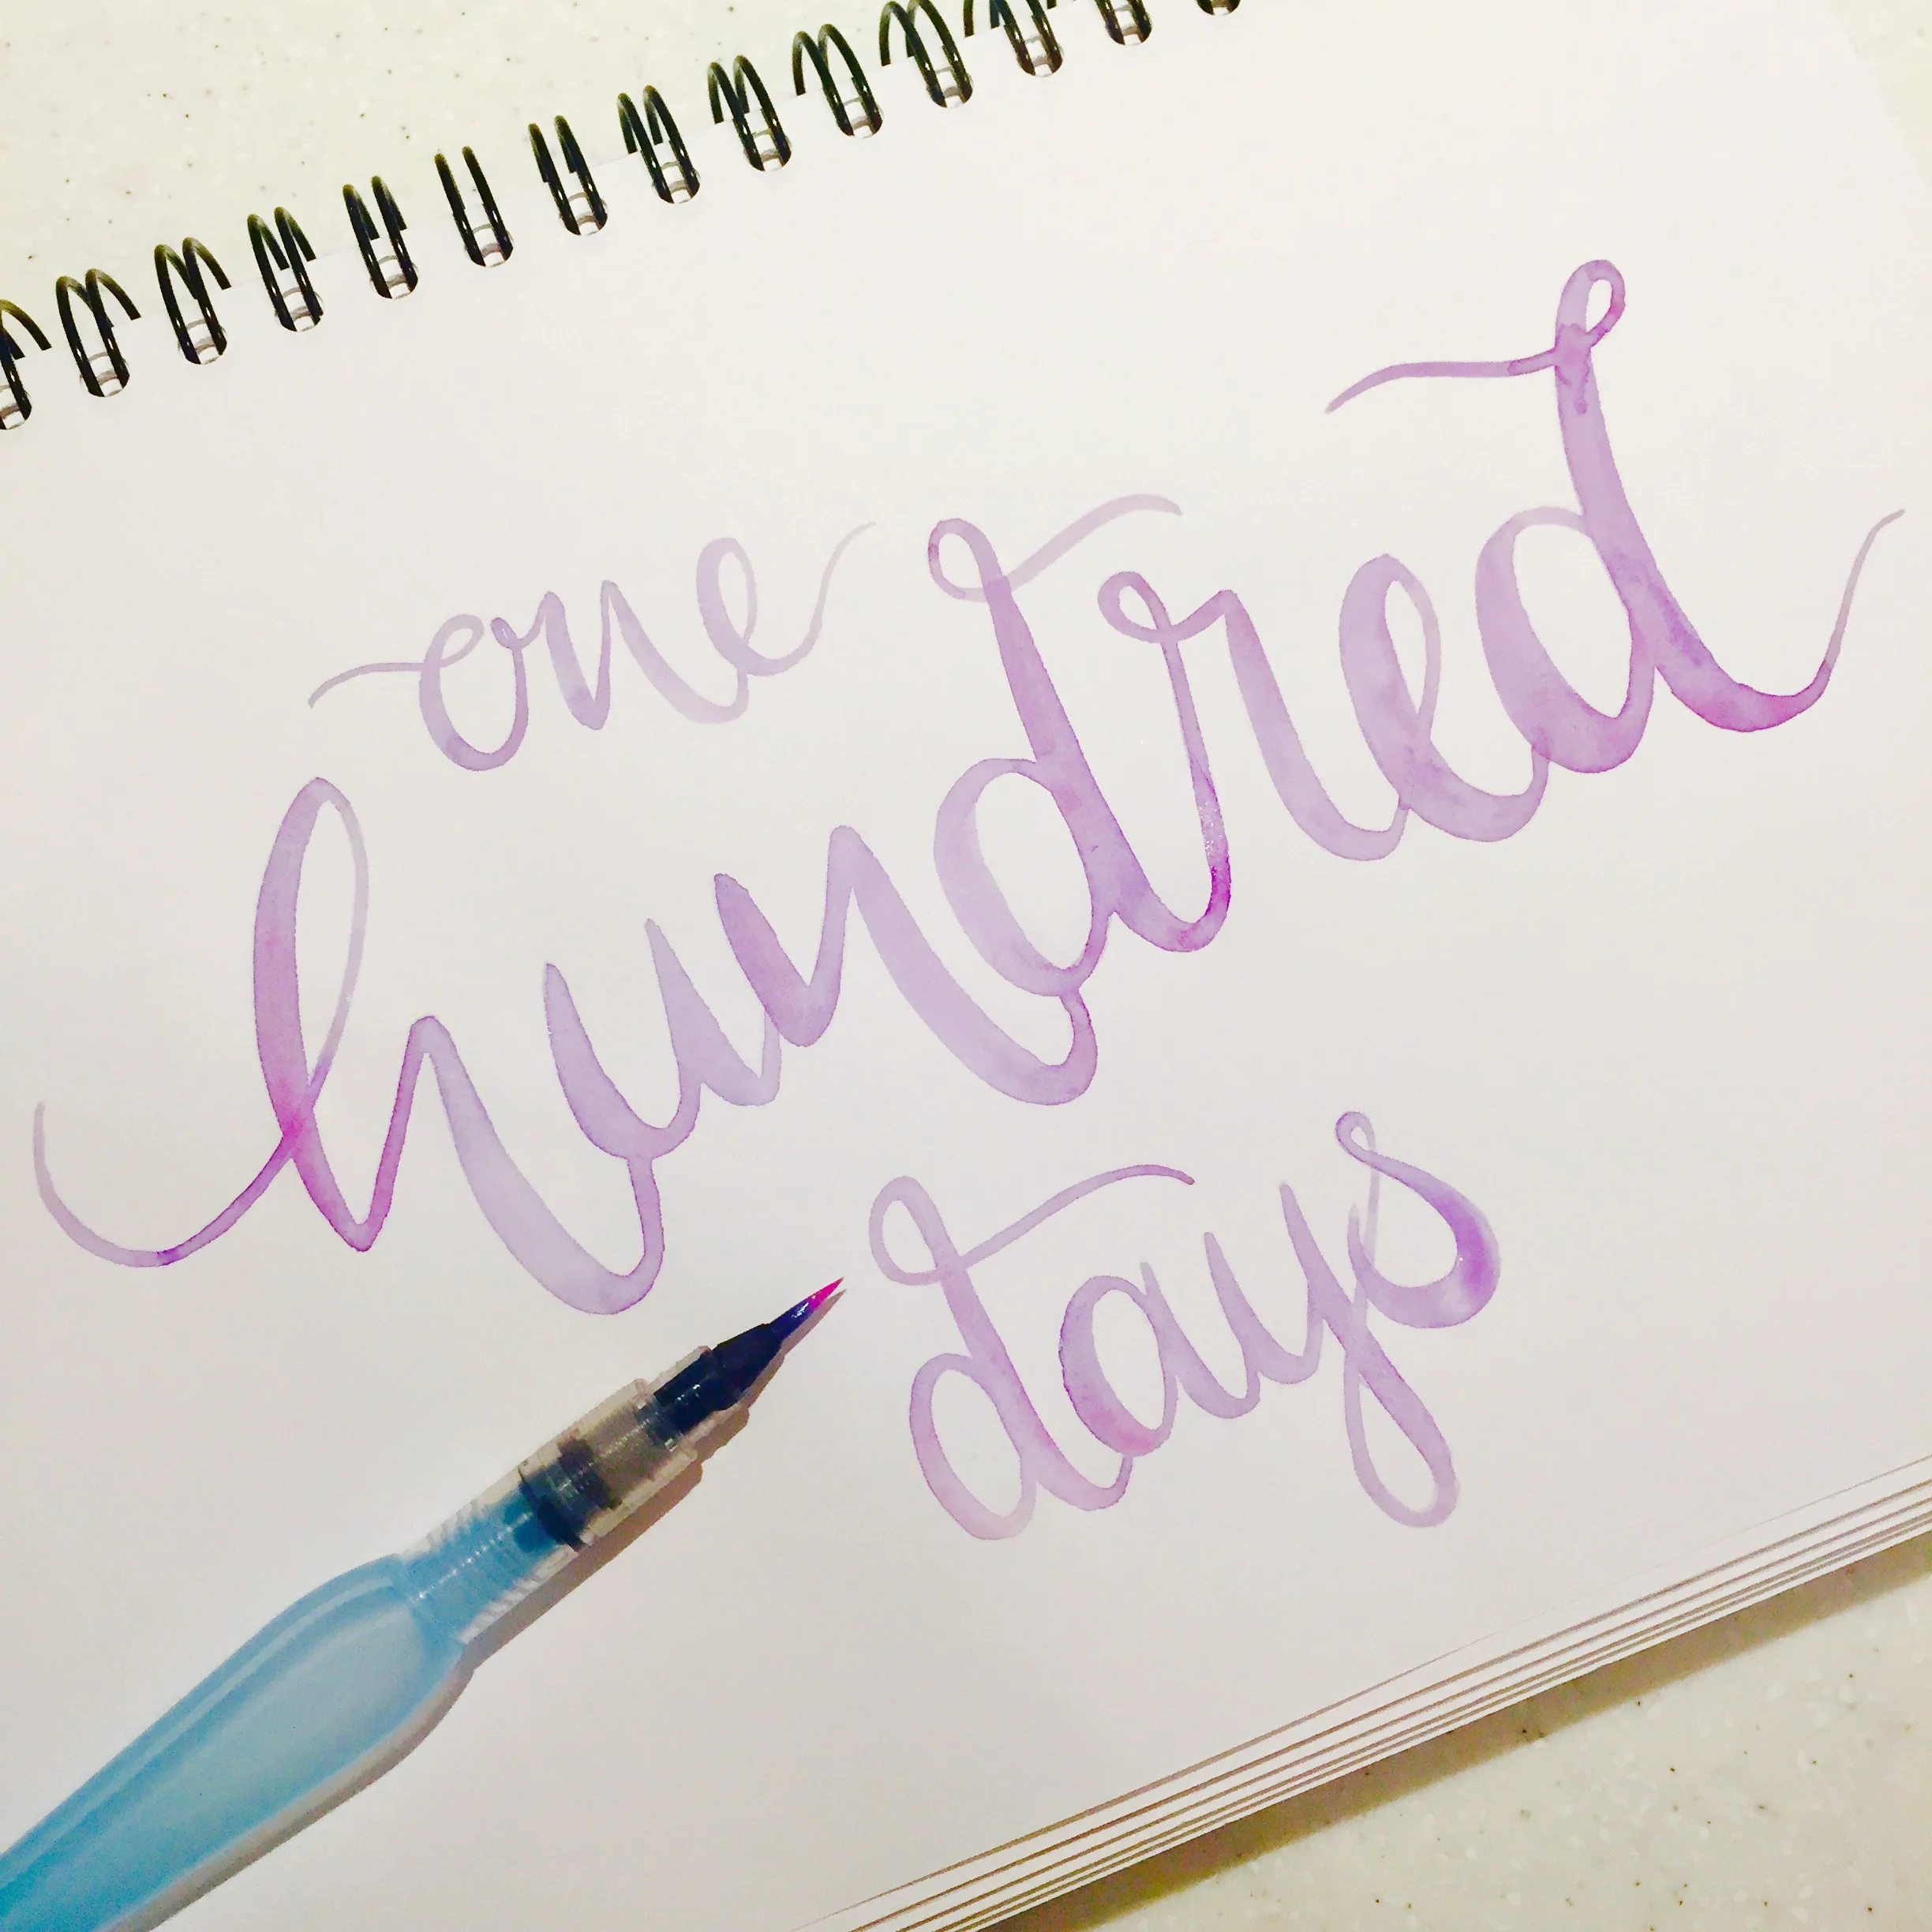 one
hundred
days